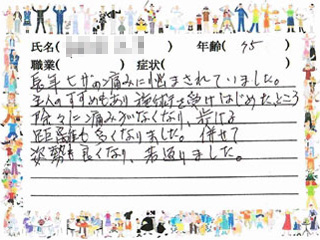 氏名( ) 年齢( 75
職業( ) 症状( )
長年ヒザの痛みに悩まされていました。
主人のすすめもあり施術を受けはじめたところ
除々に痛みがなくなり、歩ける
距離も多くなりました。併せて
姿勢も良くなり、若返りました。